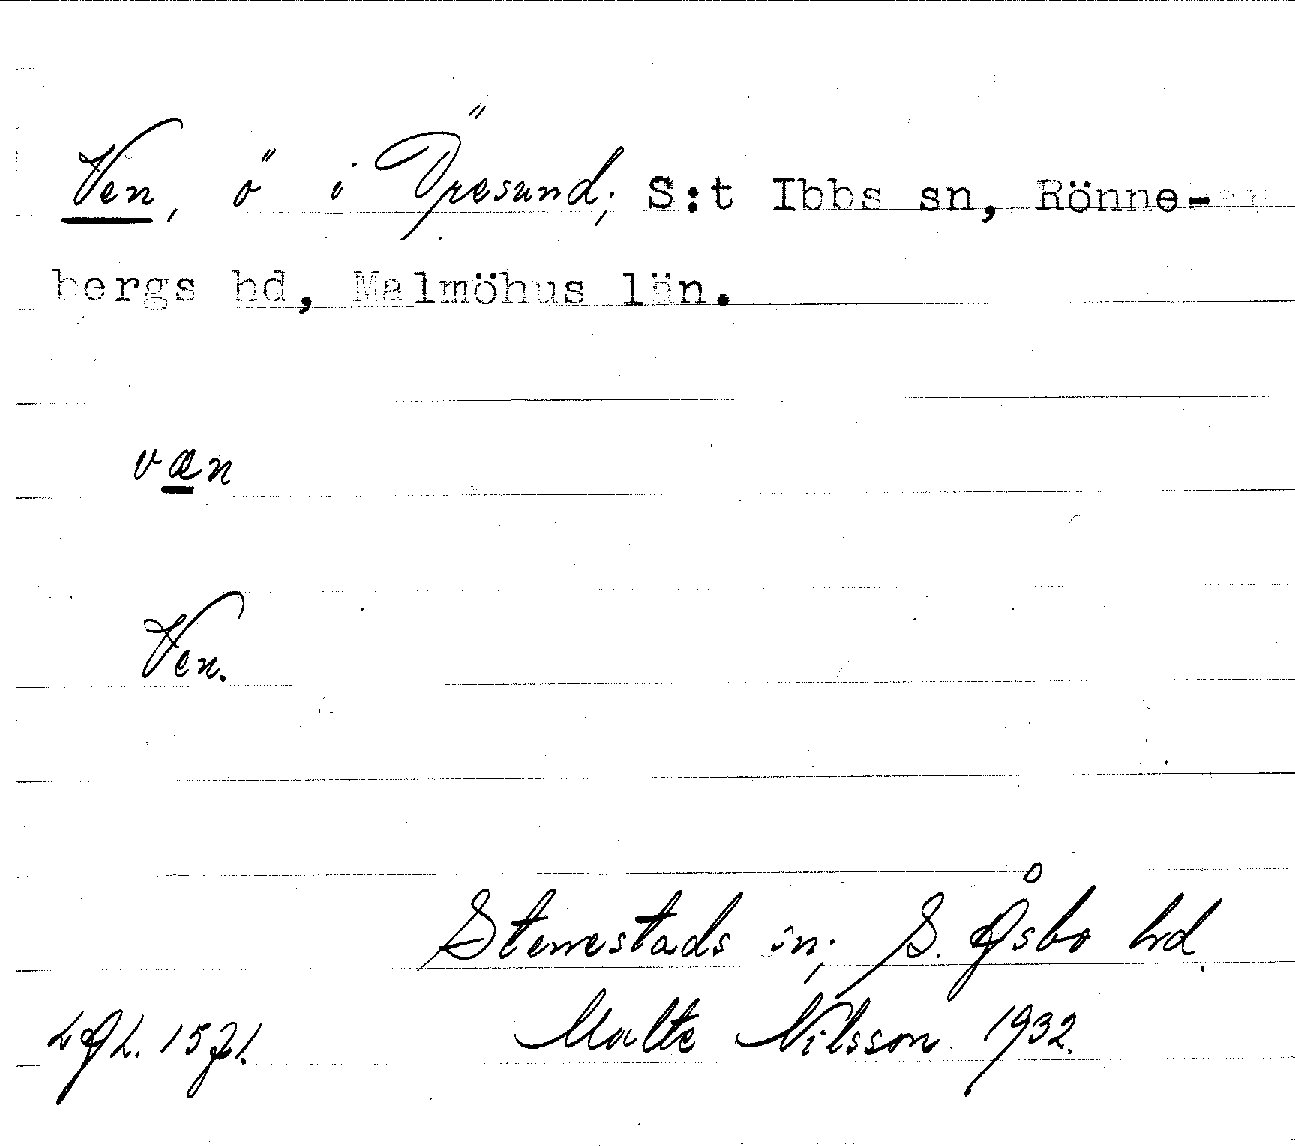 Ven, ö i Öresund; S:t Ibbs sn, Rönne-
bergs hd, Malmöhus län.
væn
Ven.
Stenestads sn; S. Åsbo hd.
LAL. 1571. Malte Nilsson 1932.